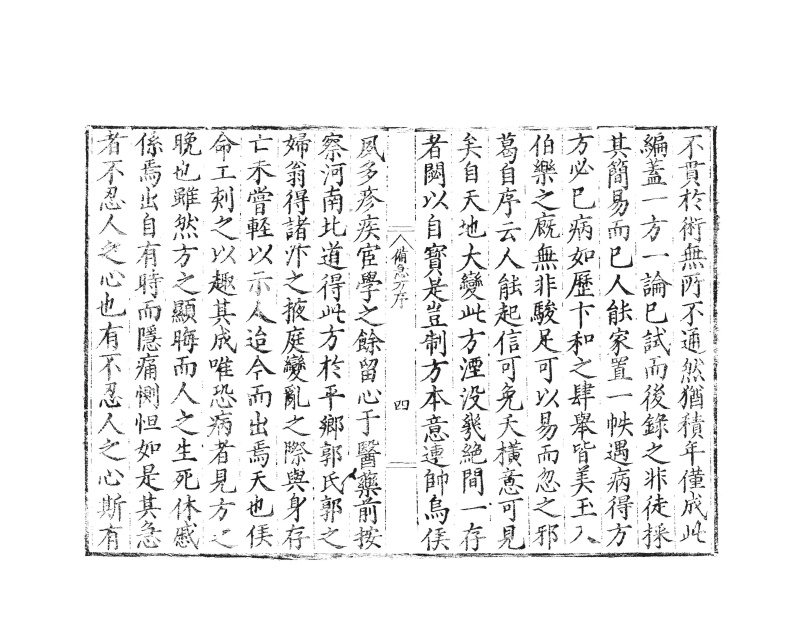 不貫於術無所不通然猶積年僅成此
編蓋一方一論已試而後錄之非徒採
其簡易而已人能家置一帙遇病得方
方必已病如歷卞和之肆舉皆美玉入
伯樂之廐無非駿足可以易而忽之邪
葛自序云人能起信可免夭橫意可見
矣自天地大變此方湮没幾絶間一存
者閟以自寳是豈制方本意連帥烏侯
備急方序
四
夙多疹疾宦學之餘留心于醫藥前按
察河南北道得此方於平鄉郭氏郭之
婦翁得諸汴之掖庭變亂之際與身存
亡未嘗輕以示人迨今而出焉天也侯
命工刻之以趣其成唯恐病者見方之
晚也雖然方之顯晦而人之生死休戚
係焉出自有時而隱痛惻怛如是其急
者不忍人之心也有不忍人之心斯有